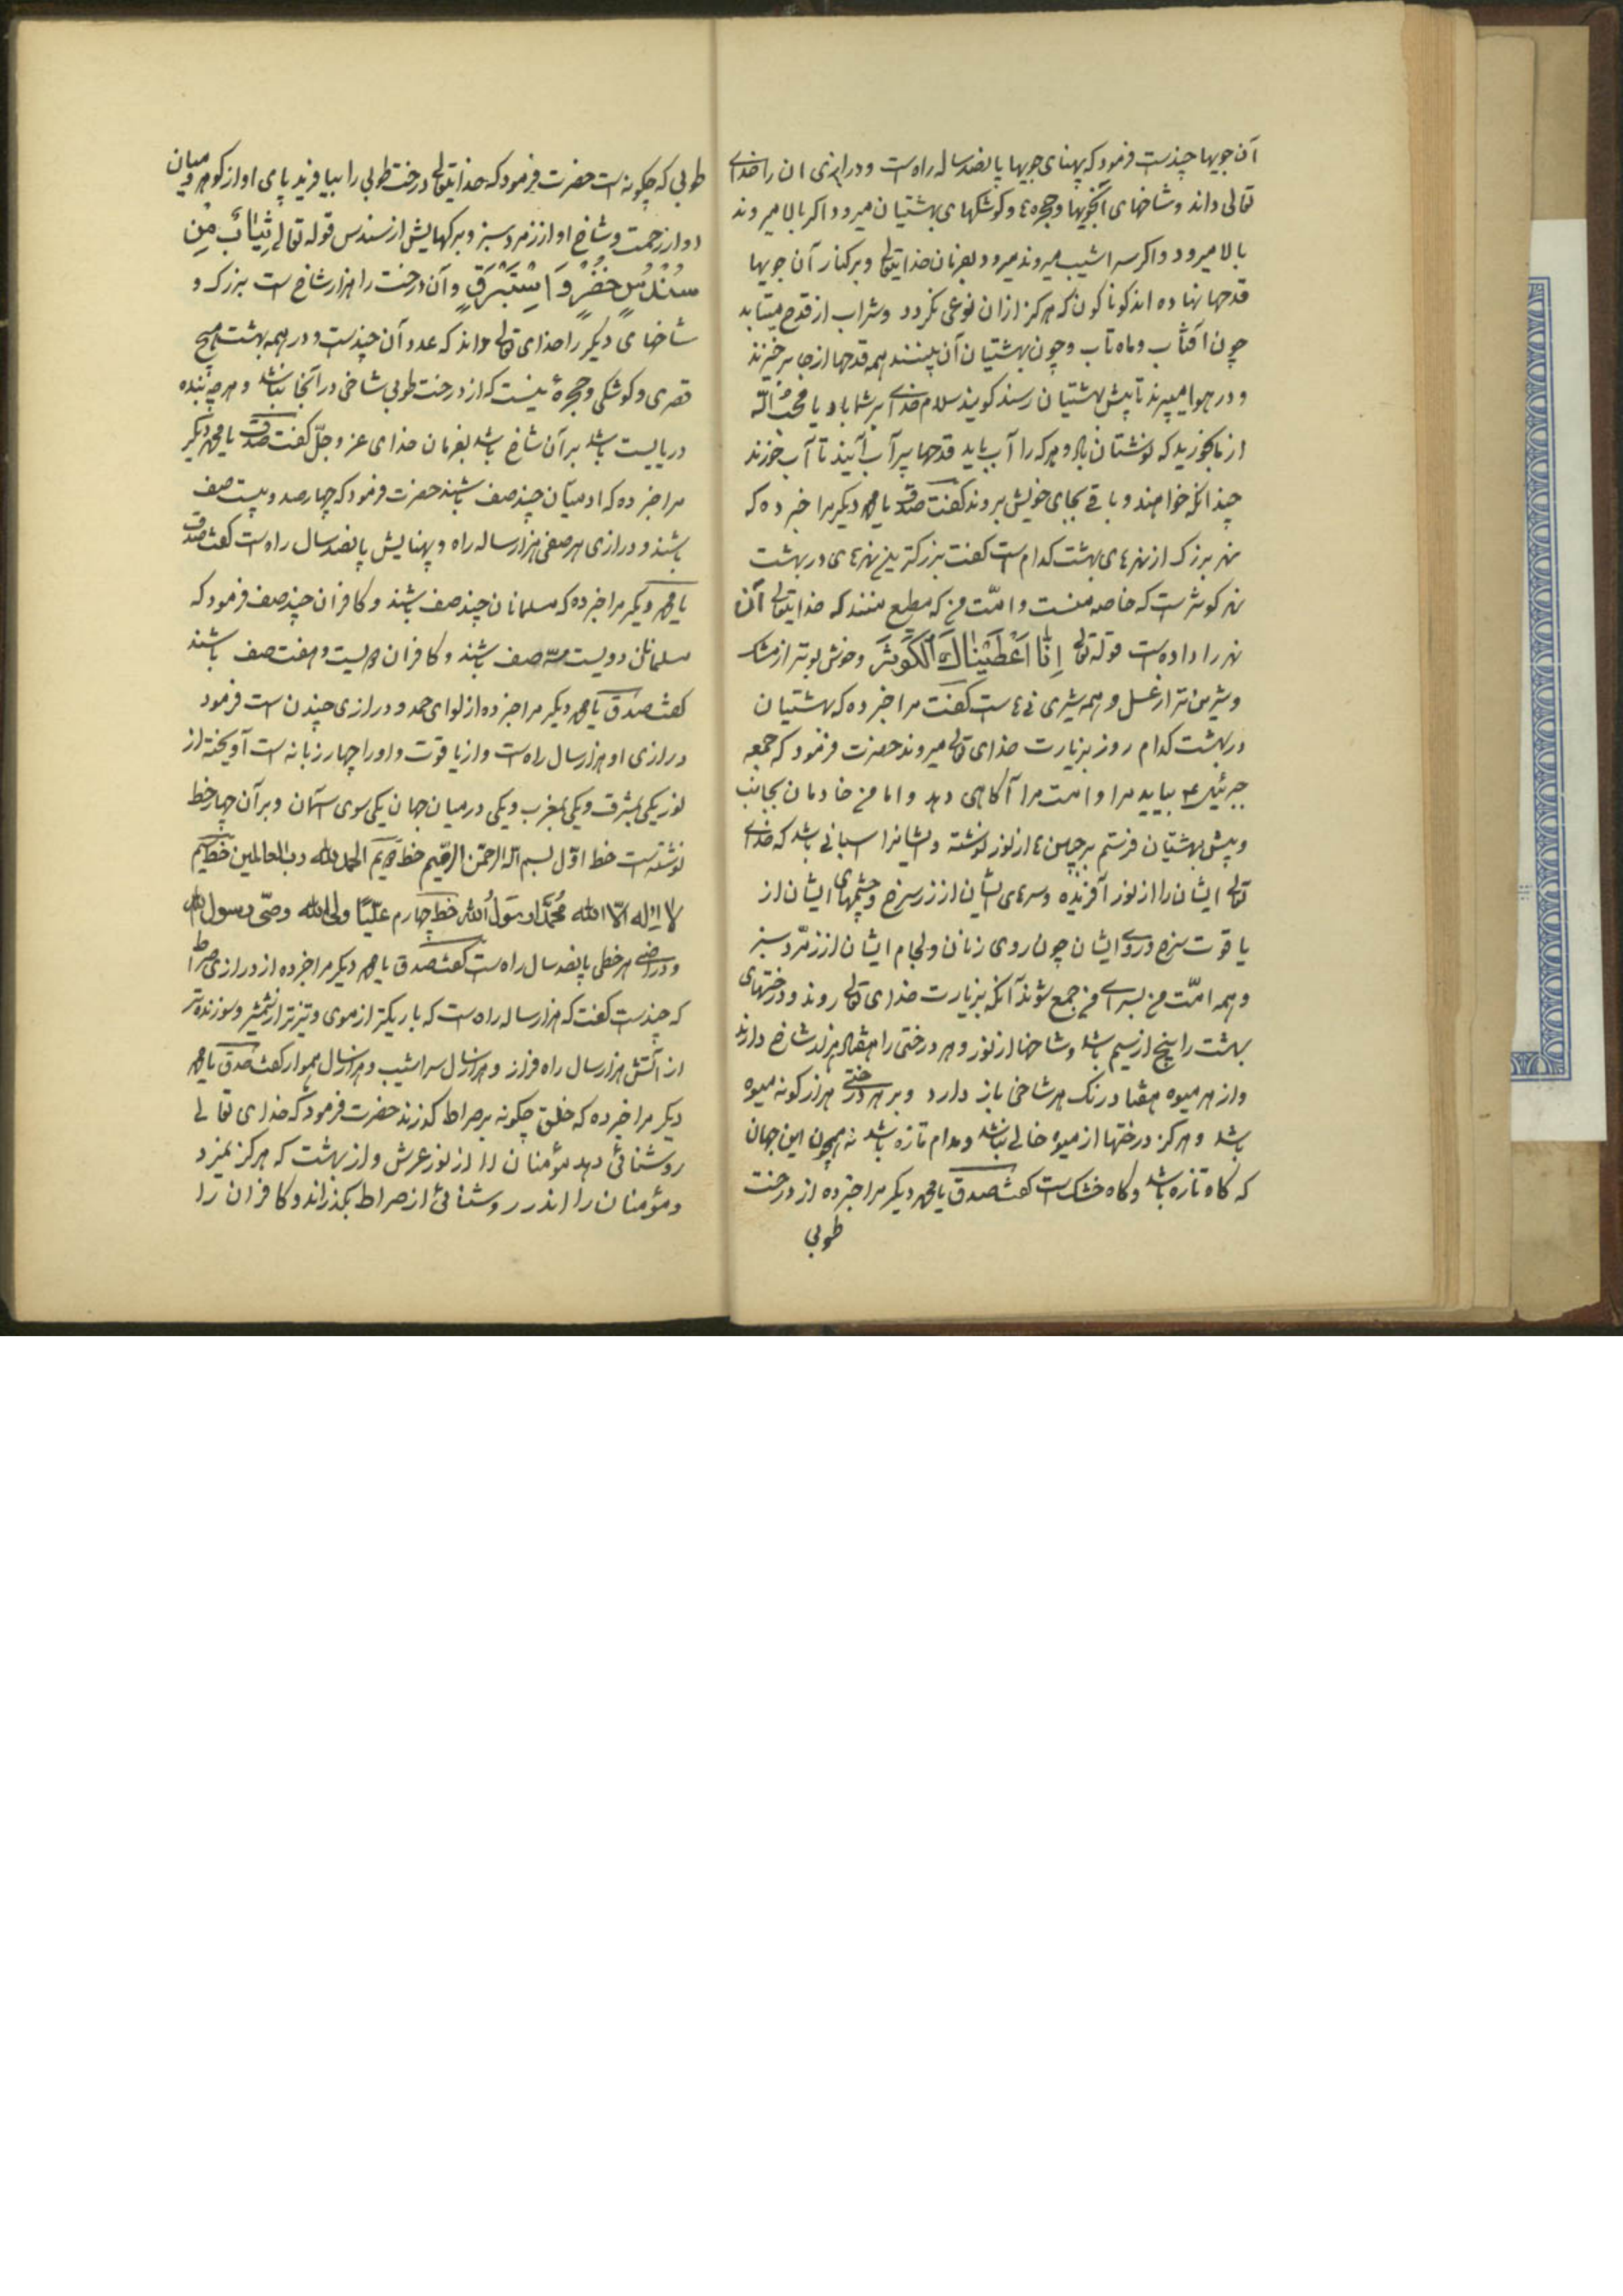 آن جویها چندست فرمود که پهنای جویها پانصد ساله راه است و درازی آن را خدای
تعالی داند و شاخهای آنجویها و حجره‌ها و کوشکهای بهشتیان میرود اکر بالا میروند
بالا میرود و اکر سراشیب میروند میرود بفرمان خدایتعالی و بر کنار آن جویها
قدحها نهاده اند کوناکون که هرکز ازان نوعی نکردد و شراب از قدح میتابد
چون آفتاب و ماه تاب و چون بهشتیان آن ببینند همه قدحها از جا برخیزند
و در هوا میپرند تا پیش بهشتیان رسند کویند سلام خدای بر شما باد یا محب الله
از ما بخورید که نوشتان باد و هرکه را آب باید قدحها پر آب آیند تا آب خورند
چندانکه خواهند و باقی بجای خویش بروند کفت صدق یا محمد دیکر مرا خبر ده که
نهر بزرک از نهرهای بهشت کدام است کفت بزرکترین نهرهای در بهشت
نهر کوثر است که خاصه منست و امّت من که مطیع منند که خدایتعالی آن
نهر را داده است قوله تعالی اِنّا اَعْطَیْناكَ الْكَوْثَرَ و خوش بوتر از مشک
و شیرین تر از عسل و همه شیرینی‌ها است کفت مرا خبر ده که بهشتیان
در بهشت کدام روز بزیارت خدای تعالی میروند حضرت فرمود که جمعه
جبرئیل ع بیاید مرا و امت مرا آکاهی دهد و اما من خادمان بجانب
و پیش بهشتیان فرستم بر جبین‌ها از نور نوشته و ایشانرا اسبانی باشد که خدای
تعالی ایشان را از نور آفریده و سرهای ایشان از زر سرخ و چشمهای ایشان از
یاقوت سرخ و روی ایشان چون روی زنان و لجام ایشان از زمّرد سبز
و همه امّت من بسرای من جمع شوند آنکه بزیارت خدای تعالی روند و درختهای
بهشت را بیخ از سیم باشد و شاخها از نور و هر درختی را هفتاد هزار شاخ دارند
و از هر میوه هفتاد رنک هر شاخی باز دارد و بر هر درختی هزار کونه میوه
باشد و هرکز درختها از میوه خالی نباشد و مدام تازه باشد نه همچون این جهان
که کاه تازه باشد و کاه خشک است کفت صدق یا محمد دیکر مرا خبر ده از درخت
طوبی
طوبی که چکونه است حضرت فرمود که خدایتعالی درخت طوبی را بیافرید پای او از کوهر و میان
او از رحمت و شاخ او از زمرد سبز و برکهایش از سندس قوله تعالی ثِیابٌ مِن
سُنْدُسٍ خُضْرٍ وَ اِسْتَبْرَقٍ و آن درخت را هزار شاخ است بزرک و
شاخهای دیکر را خدای تعالی داند که عدد آن چندست و در همه بهشت هیچ
قصری و کوشکی و حجرهٔ نیست که از درخت طوبی شاخی در آنجا نباشد و هرچه بنده
دربایست باشد بر آن شاخ باشد بفرمان خدای عز و جلّ کفت صدق یا محمد دیکر
مرا خبر ده که آدمیان چند صف باشند حضرت فرمود که چهار صد و بیست صف
باشند و درازی هر صفی هزار ساله راه و پهنایش پانصد سال راه است کفت صدق
یا محمد دیکر مرا خبر ده که مسلمانان چند صف باشند و کافران چند صف فرمود که
مسلمانان دویست و سه صف باشند و کافران دویست و هفت صف باشند
کفت صدق یا محمد دیکر مرا خبر ده از لوای حمد و درازی چندن است فرمود
درازی او هزار سال راه است و از یاقوت و او را چهار زبانه است آویخته از
نور یکی بمشرق و یکی بمغرب و یکی در میان جهان یکی سوی آسمان و بر آن چهار خط
نوشته است خط اوّل بسم الله الرحمن الرحیم خط دویم الحمد لله رب العالمین خط سیم
لا اله الّا الله محمّد رسول الله خط چهارم علیّا ولی الله وصّی رسول الله
و درازی هر خطی پانصد سال راه است کفت صدق یا محمد دیکر مرا خبر ده از درازی صراط
که چندست کفت که هزار ساله راه است که باریکتر از موی و تیزتر از شمشیر و سوزنده تر
از آتش هزار سال راه فراز و هزار سال سراشیب و هزار سال هموار کفت صدق یا محمد
دیکر مرا خبر ده که خلق چکونه بر صراط کذرند حضرت فرمود که خدای تعالی
روشنائی دهد مؤمنان را از نور عرش و از بهشت که هرکز نمیرد
و مؤمنان را اندر روشنائی از صراط بکذراند و کافران را